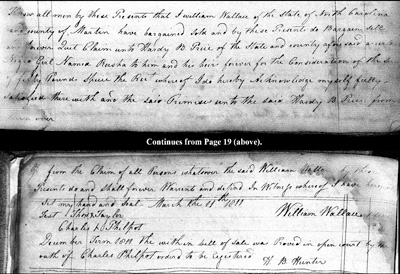 Know all men by these Presents that I William Wallace of the State of North Carolina
and County of Martin have bargained Sold and by these Presents do Bargain Sell
and forever Quit Claim unto Hardy B Price of the State and County aforesaid a certain
Negro Girl Named to him and his heir forever for the Consideration of the
fifty Pounds Specie the Rec where of I do hereby Acknowledge myself fully
Satisfied there with and the said Promise unto the said Hardy B Price from
Continues from Page 19 (above).
from the Claim of all Persons whatsoever the said William
Presents do and Shall forever Warrent and defend In Witness whereof I have
Set my hand and Seal March the 11th 1811
Test Thos Taylor William Wallace
Charles Philpot
December Term 1811 the within bill of Sale was Proved in open court by the
oath of Charles Philpot ordred to be registered
H B Hunter